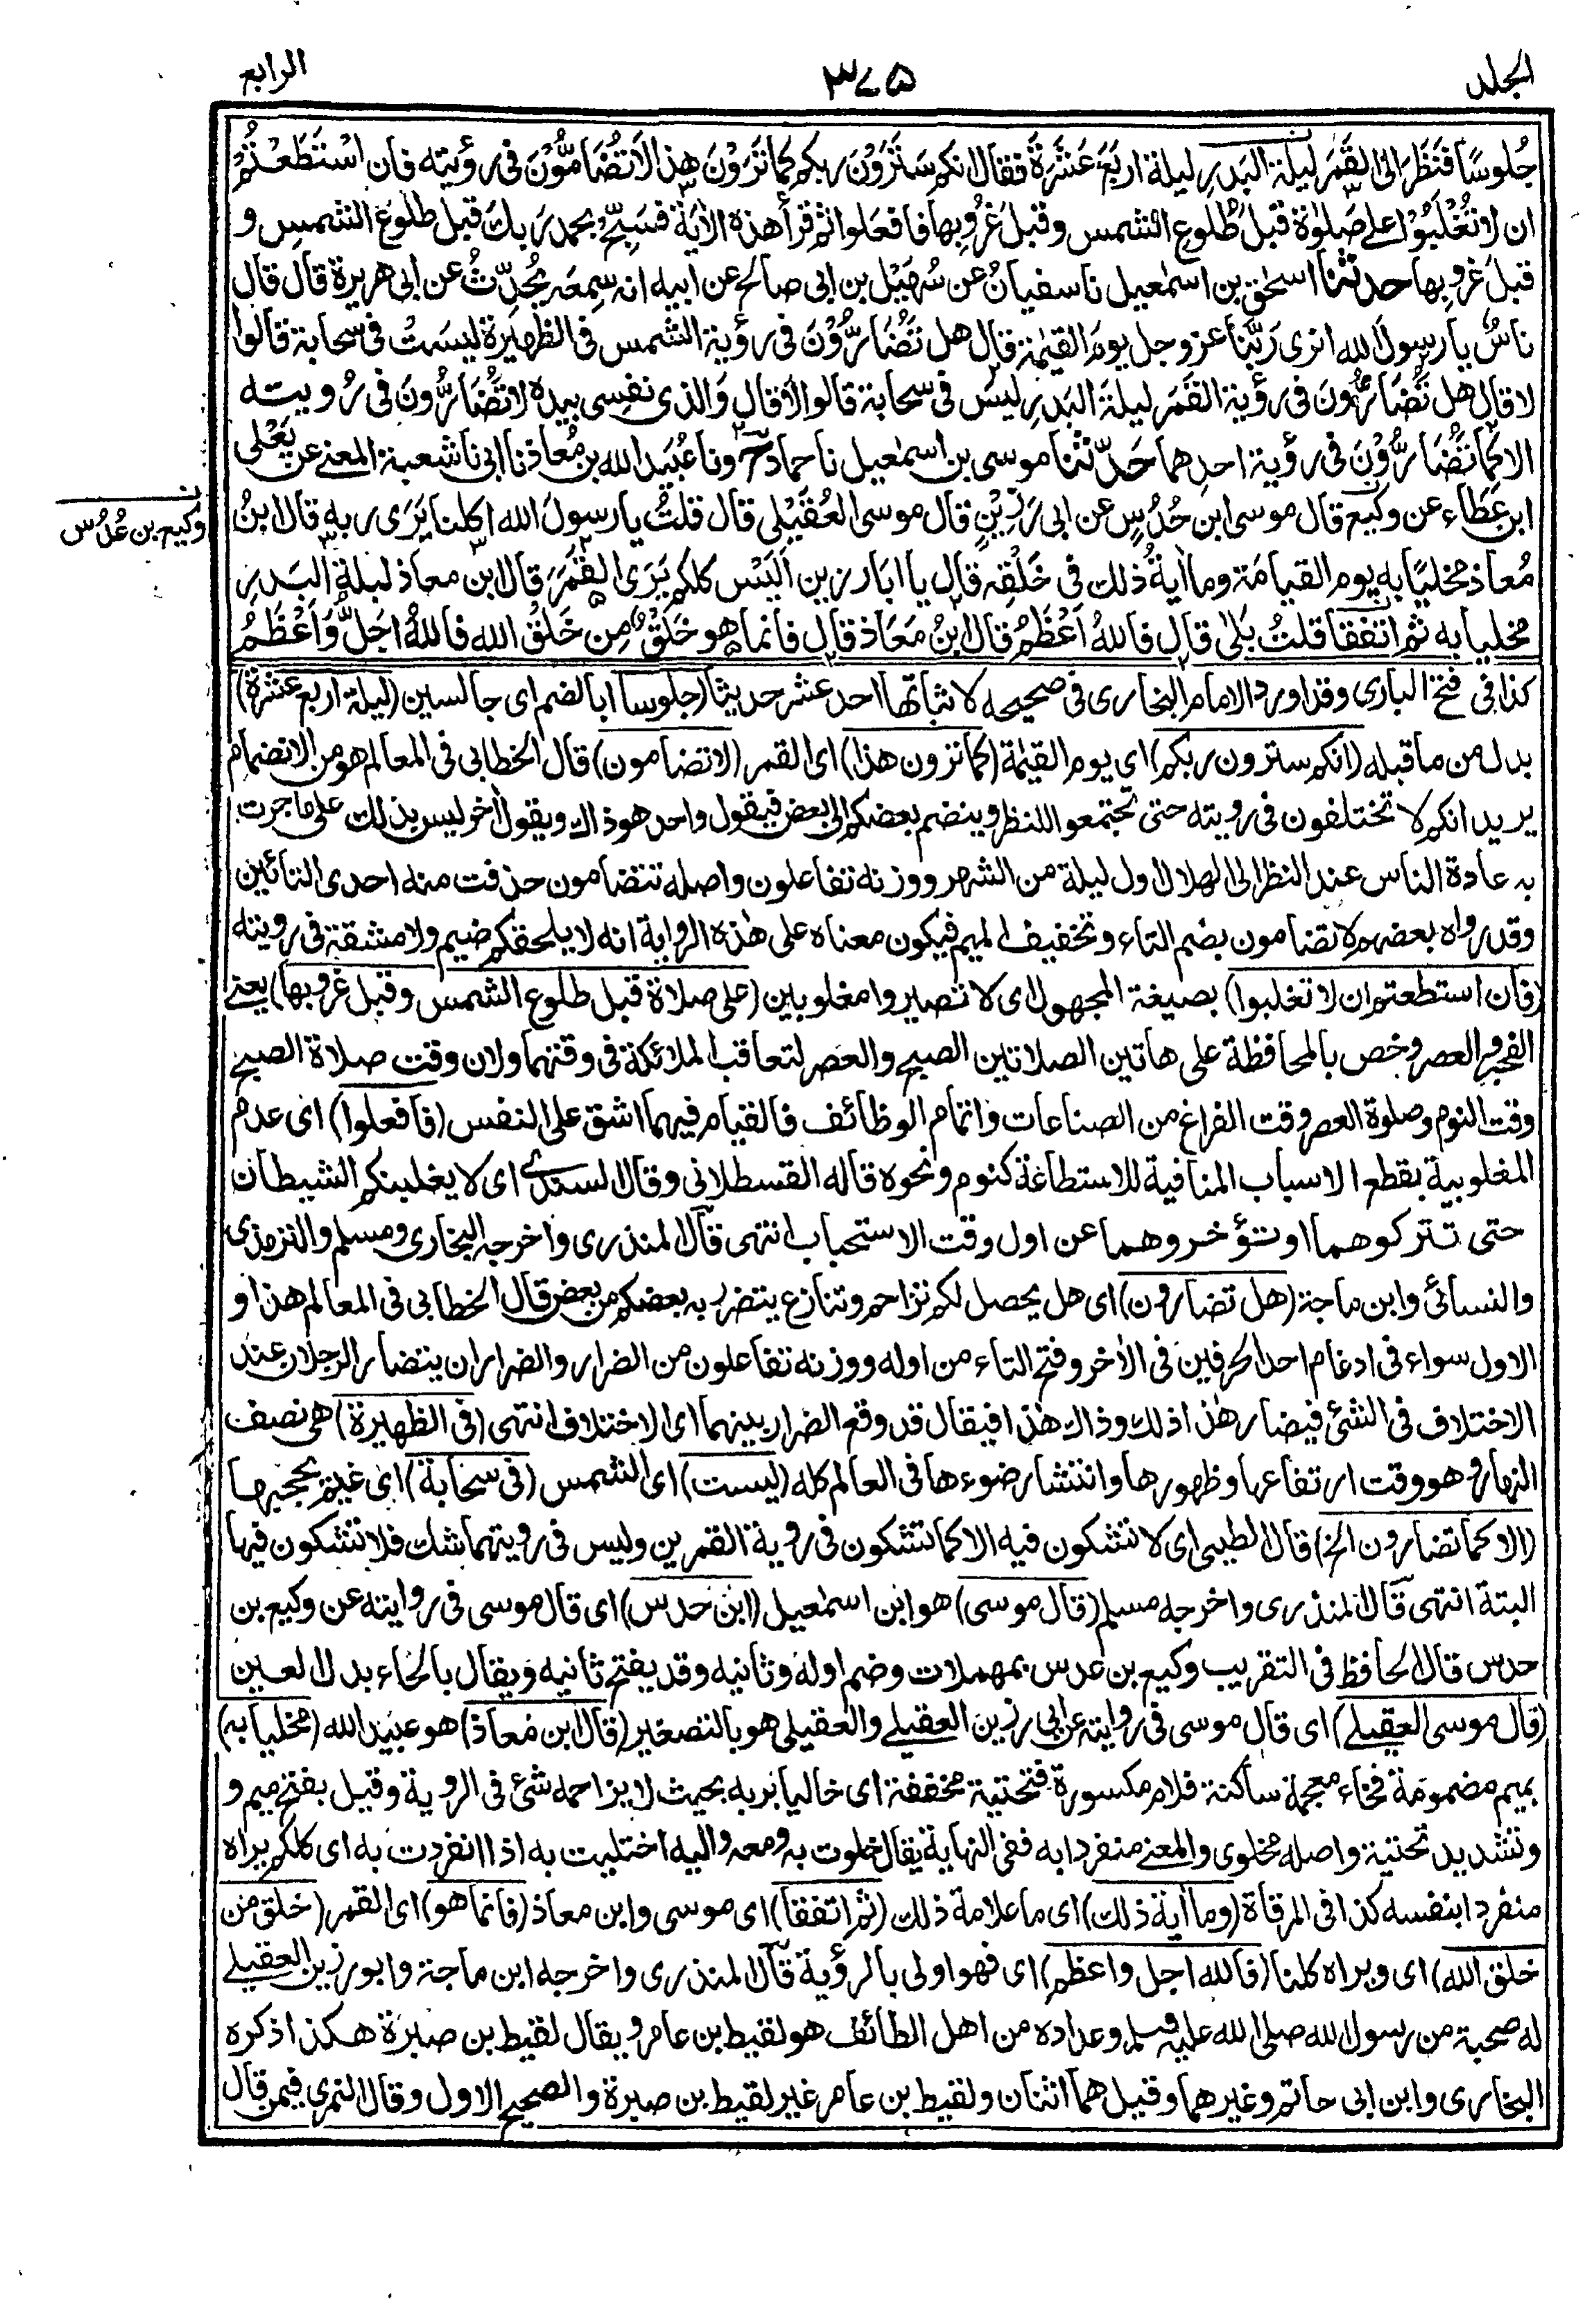 الجلد
٣٧٥
الرابع
جُلوسًا فَنَظَرَ الى القَمَرِ ليلةَ البَدرِ ليلةَ اربَعَ عَشَرَةَ فقال انكم سَتَرَوْنَ ربكم كما تَرَوْنَ هذا لا تُضَامُّوْنَ فى رؤيته فان اسْتَطَعْتُمْ
ان لا تُغْلَبُوْا على صَلٰوة قبلَ طُلوعِ الشمس وقبلَ غُرُوبها فافعلوا ثم قرأ هذه الاٰيةَ فَسَبِّحْ بحمدِ رَبك قبل طلوعِ الشمسِ و
قبلَ غروبها حدثنا اسحٰق بن اسمٰعيل نا سفيانُ عن سُهَيْل بن ابى صالح عن ابيه انه سمعَه يُحَدِّثُ عن ابى هريرة قال قال
ناسٌ يا رسولَ الله انرى رَبَّنا عز وجل يومَ القيٰمة قال هل تُضَارُّوْنَ فى رؤية الشمس فى الظهيرة ليسَتْ فى سحابة قالوا
لا قال هل تُضَارُّونَ فى رؤية القَمَرِ ليلةَ البَدرِ ليسَ فى سحابة قالوا لا قال وَالذى نفسى بيده لا تُضَارُّونَ فى رُويته
الا كما تُضَارُّوْنَ فى رؤية احدِهما حَدّثنا موسى بن اسمٰعيل نا حماد ح ونا عُبَيد الله بن مُعاذ نا ابى نا شعبة المعنے عن يَعْلى
ابن عَطَاء عن وكيع قال موسى ابن حُدُسٍ عن ابى رَزِيْنٍ قال موسى العُقَيْلى قال قلتُ يا رسولَ الله اكلنا يَرَى ربه قال ابنُ
وكيع بن عُدُس
مُعاذ مُخليًا به يوم القيامَة وما اٰيةُ ذلك فى خَلْقِه قال يا ابا رزين اَلَيْسَ كلكم يَرَى القَمَرَ قال ابن معاذ ليلةَ البَدرِ
مُخليا به ثم اتفقا قلتُ بَلىٰ قال فاللهُ اَعْظَمُ قال ابنُ مَعَاذ قال فانما هو خَلْقٌ مِن خَلْقِ الله فاللهُ اجَلُّ وَاَعْظَمُ
كذا فى فتح البارى وقد اورد الامام البخارى فى صحيحه لاثباتها احد عشر حديثا (جلوسا) بالضم اى جالسين (ليلة اربع عشرة)
بدل من ما قبله (انكم سترون ربكم) اى يوم القيٰمة (كما ترون هذا) اى القمر (لا تضامون) قال الخطابى فى المعالم هو من الانضمام
يريد انكم لا تختلفون فى رويته حتى تجتمعوا للنظر وينضم بعضكم الى بعض فيقول واحد هو ذاك ويقول اٰخر ليس بذلك على ما جرت
به عادة الناس عند النظر الى الهلال اول ليلة من الشهر ووزنه تفاعلون واصله تتضامون حذفت منه احدى التائين
وقد رواه بعضهم لا تضامون بضم التاء وتخفيف الميم فيكون معناه على هذه الرواية انه لا يلحقكم ضيم ولا مشقة فى رويته
(فان استطعتم ان لا تغلبوا) بصيغة المجهول اى لا تصيروا مغلوبين (على صلاة قبل طلوع الشمس وقبل غروبها) يعنے
الفجر والعصر وخص بالمحافظة على هاتين الصلاتين الصبح والعصر لتعاقب الملائكة فى وقتهما ولان وقت صلاة الصبح
وقت النوم وصلوة العصر وقت الفراغ من الصناعات واتمام الوظائف فالقيام فيهما اشق على النفس (فافعلوا) اى عدم
المغلوبية بقطع الاسباب المنافية للاستطاعة كنوم ونحوه قاله القسطلانى وقال السندے اى لا يغلبنكم الشيطان
حتى تتركوهما او تؤخروهما عن اول وقت الاستحباب انتهى قال المنذرى واخرجه البخارى ومسلم والترمذى
والنسائى وابن ماجة (هل تضارون) اى هل يحصل لكم تزاحم وتنازع يتضرر به بعضكم من بعض قال الخطابى فى المعالم هذا و
الاول سواء فى ادغام احد الحرفين فى الاٰخر وفتح التاء من اوله ووزنه تفاعلون من الضرار والضرار ان يتضار الرجلان عند
الاختلاف فى الشئ فيضار هذا ذلك وذاك هذا فيقال قد وقع الضرار بينهما اى الاختلاف انتهى (فى الظهيرة) هى نصف
النهار وهو وقت ارتفاعها وظهورها وانتشار ضوءها فى العالم كله (ليست) اى الشمس (فى سحابة) اى غيم تحجبها
(الا كما تضارون الخ) قال الطيبى اى لا تشكون فيه الا كما تشكون فى روية القمرين وليس فى رويتهما شك فلا تشكون فيها
البتة انتهى قال المنذرى واخرجه مسلم (قال موسى) هو ابن اسمٰعيل (ابن حدس) اى قال موسى فى روايته عن وكيع بن
حدس قال الحافظ فى التقريب وكيع بن عدس بمهملات وضم اوله وثانيه وقد يفتح ثانيه ويقال بالحاء بدل العين
(قال موسى العقيلے) اى قال موسى فى روايته عن ابى رزين العقيلے والعقيلى هو بالتصغير (قال ابن مُعاذ) هو عبيد الله (مخليا به)
بميم مضمومة فخاء معجمة ساكنة فلام مكسورة فتحتية مخففة اى خاليا بربه بحيث لا يزاحمه شئ فى الروية وقيل بفتح ميم و
وتشديد تحتية واصله مخلوى والمعنے منفردا به ففى النهاية يقال خلوت به ومعه واليه اختليت به اذا انفردت به اى كلكم يراه
منفردا بنفسه كذا فى المرقاة (وما اٰية ذلك) اى ما علامة ذلك (ثم اتفقا) اى موسى وابن معاذ (فانما هو) اى القمر (خلق من
خلق الله) اى ويراه كلنا (فالله اجل واعظم) اى فهو اولى بالرؤية قال المنذرى واخرجه ابن ماجة وابو رزين العقيلے
له صحبة من رسول الله صلى الله عليه وسلم وعداده من اهل الطائف هو لقيط بن عامر ويقال لقيط بن صبرة هكذا ذكره
البخارى وابن ابى حاتم وغيرهما وقيل هما اثنان ولقيط بن عامر غير لقيط بن صبرة والصحيح الاول وقال النمرى فيمن قال